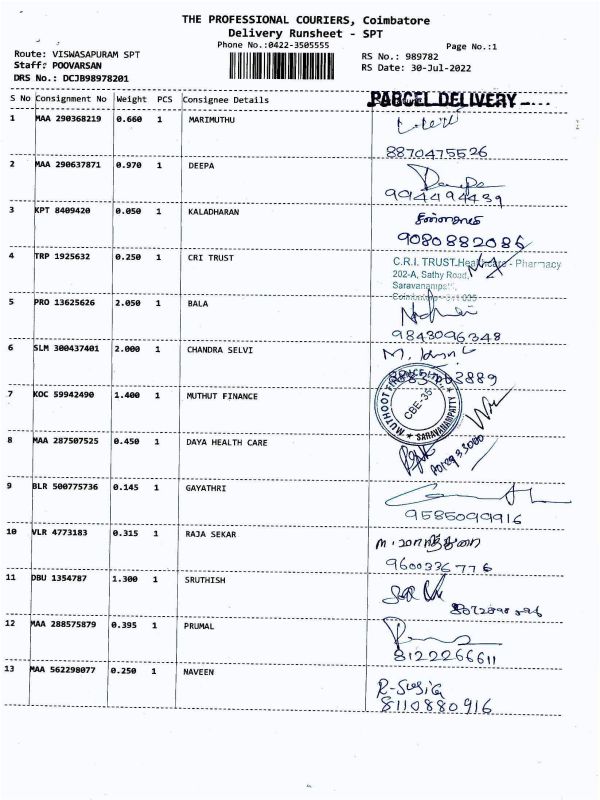 THE PROFESSIONAL COURIERS, Coimbatore
Delivery Runsheet - SPT
Phone No.:0422-3505555
Page No.:1
Route: VISWASAPURAM SPT
Staff: POOVARSAN
DRS No.: DCJB98978201
RS No.: 989782
RS Date: 30-Jul-2022
S No Consignment No Weight PCS Consignee Details PARCEL DELIVERY
1 MAA 290368219 0.660 1 MARIMUTHU
8870475526
2 MAA 290637871 0.970 1 DEEPA
9944494439
3 KPT 8409420 0.050 1 KALADHARAN
9080882086
4 TRP 1925632 0.250 1 CRI TRUST
C.R.I. TRUST Healthcare - Pharmacy
202-A, Sathy Road,
Saravanampatti,
5 PRO 13625626 2.050 1 BALA
9843096348
6 SLM 300437401 2.000 1 CHANDRA SELVI
7 KOC 59942490 1.400 1 MUTHUT FINANCE
CBE-35
SARAVANAMPATTY
8 MAA 287507525 0.450 1 DAYA HEALTH CARE
9 BLR 500775736 0.145 1 GAYATHRI
9585099916
10 VLR 4773183 0.315 1 RAJA SEKAR
9600336776
11 DBU 1354787 1.300 1 SRUTHISH
12 MAA 288575879 0.395 1 PRUMAL
8122266611
13 MAA 562298077 0.250 1 NAVEEN
8110880916